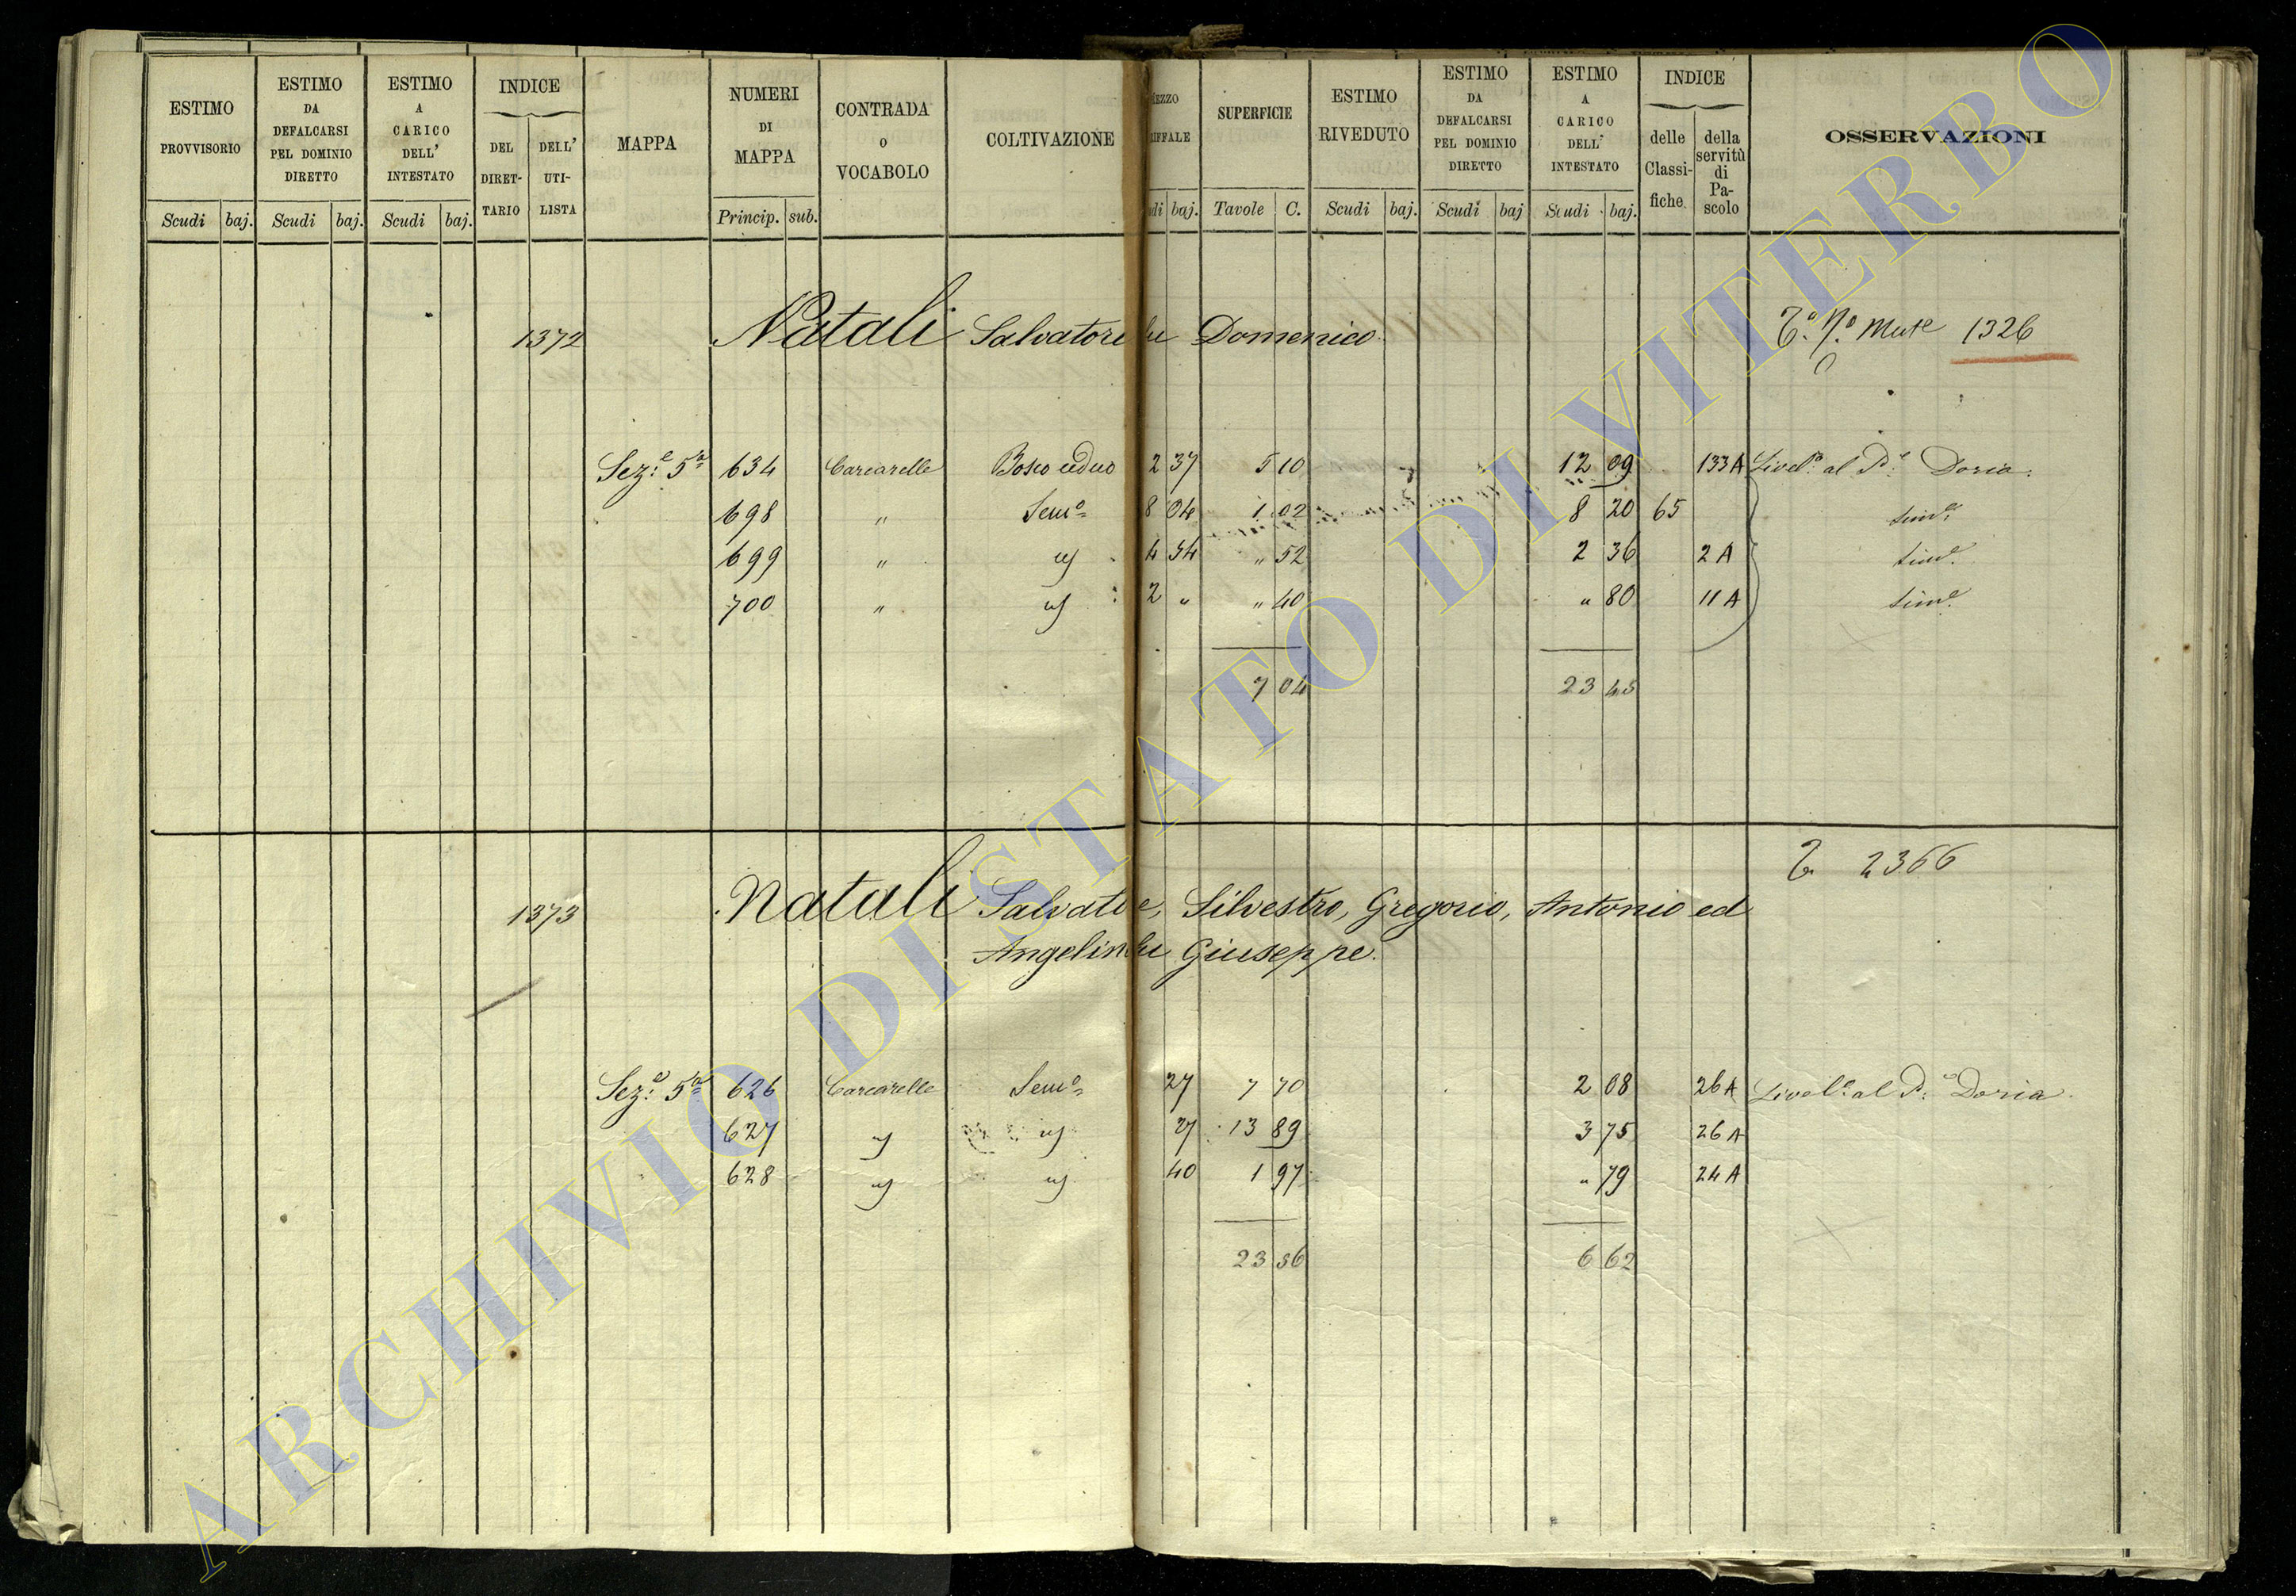 ESTIMO PROVVISORIO
ESTIMO DA DEFALCARSI PEL DOMINIO DIRETTO
ESTIMO A CARICO DELL' INTESTATO
INDICE
DEL DIRET- TARIO
DELL' UTI- LISTA
MAPPA
NUMERI DI MAPPA
CONTRADA o VOCABOLO
COLTIVAZIONE
EZZO
IFFALE
SUPERFICIE
ESTIMO RIVEDUTO
ESTIMO DA DEFALCARSI PEL DOMINIO DIRETTO
ESTIMO A CARICO DELL' INTESTATO
INDICE
delle Classi- fiche
della servitù di Pa- scolo
OSSERVAZIONI
Scudi baj. Scudi baj. Scudi baj. Princip. sub. di baj. Tavole C. Scudi baj. Scudi baj Scudi baj.
1372 Natali Salvatore fu Domenico 1326
Sez.e 5a 634 Carcarelle Bosco ceduo 2 37 5 10 12 09 133A Livel.o al P.e Doria.
698 " Sem.o 8 04 1 02 8 20 65 sim.e
699 " " 4 54 " 52 2 36 2 A sim.e
700 " " 2 " " 40 " 80 11 A sim.e
7 04 23 45
2366
1373 Natali Salvatore, Silvestro, Gregorio, Antonio ed
Angelin fu Giuseppe.
Sez.e 5a 626 Carcarelle Sem.o 27 7 70 2 08 26 A Livel.o al P.e Doria
627 " " 27 13 89 3 75 26 A
628 " " 40 1 97 " 79 24 A
23 56 6 62
ARCHIVIO DI STATO DI VITERBO